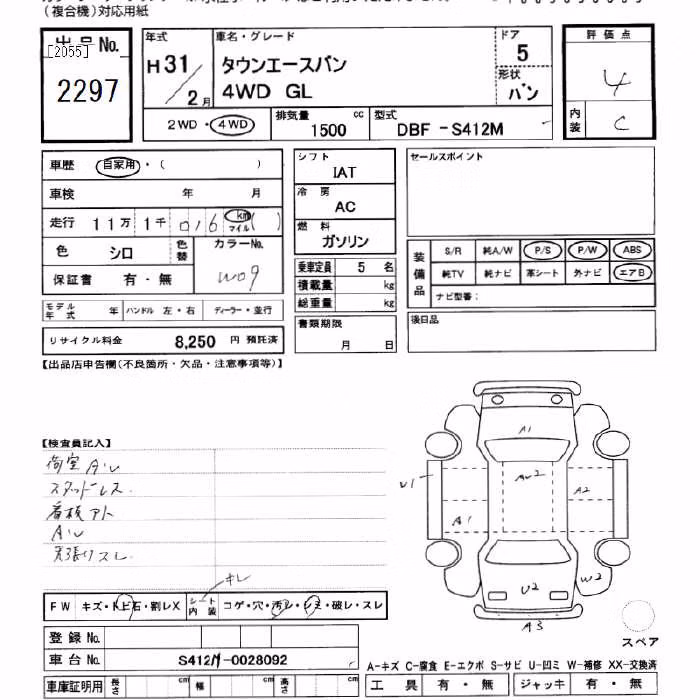 （複合機）対応用紙
出品No.
[2055]
2297
年式
H31/2月
車名・グレード
タウンエースバン
4WD GL
ドア
5
形状
バン
評価点
4
内装
C
2WD・4WD
排気量 1500 cc
型式 DBF -S412M
車歴 自家用・（ ）
車検 年 月
走行 11万1千016 km マイル（ ）
色 シロ 色替 カラーNo. W09
保証書 有・無
モデル年式 年 ハンドル 左・右 ディーラー・並行
リサイクル料金 8,250 円 預託済
シフト
IAT
冷房
AC
燃料
ガソリン
乗車定員 5 名
積載量 kg
総重量 kg
書類期限
月 日
セールスポイント
装備品
S/R 純A/W P/S P/W ABS
純TV 純ナビ 革シート 外ナビ エアB
ナビ型番：
後日品
【出品店申告欄（不良箇所・欠品・注意事項等）】
【検査員記入】
荷室 A.U
スタッドレス
看板アト
A.U
内張りスレ
A1
U1
AU2
A2
A1
U2
W2
A3
スペア
キレ
FW キズ・トビ石・割レX シート内装 コゲ・穴・汚レ・シミ・破レ・スレ
登録No.
車台No. S412M-0028092
車庫証明用 長さ cm 幅 cm 高さ cm
A-キズ C-腐食 E-エクボ S-サビ U-凹ミ W-補修 XX-交換済
工具 有・無 ジャッキ 有・無